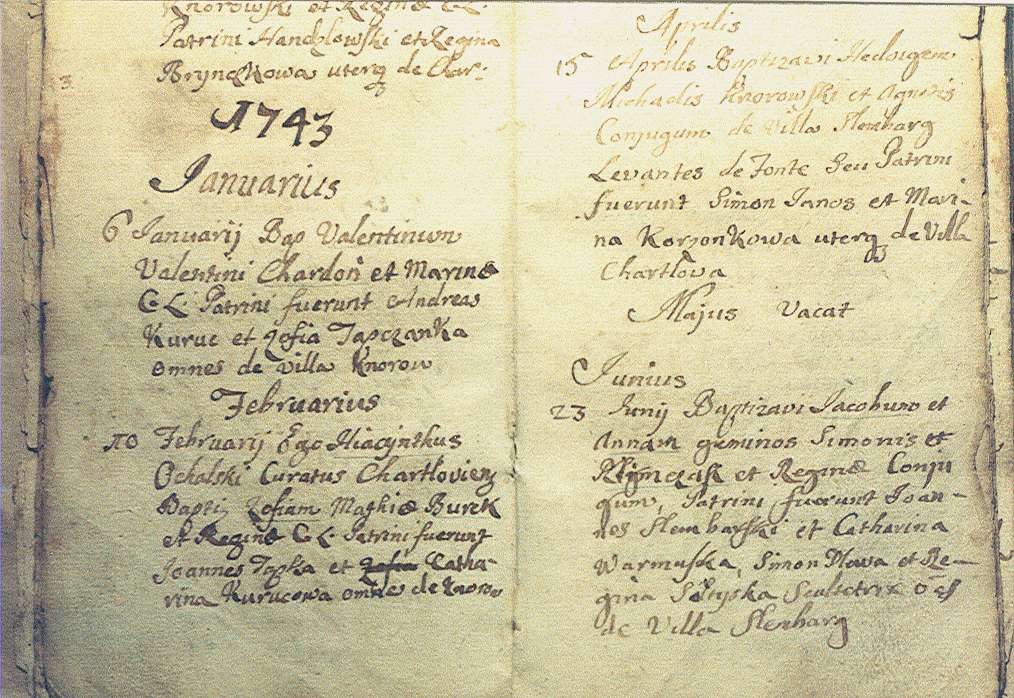 Knorowski et Reginæ C. L.
Patrini Handzlowski et Regina
Brynczkowa uterq de Char:
1743
Januarius
6 Januarij Bap Valentinum
Valentini Chardoń et Marinæ
C. L. Patrini fuerunt Andreas
Kuruc et Zofia Tapczanka
omnes de villa Knorow
Februarius
10 Februarij Ego Hiacynthus
Ochalski Curatus Chartlovien
Bapti Zofiam Mathiæ Burek
et Reginæ C. L. Patrini fuerunt
Joannes Topka et Zofia Catha-
rina Kurucowa omnes de Knorow
Aprilis
15 Aprilis Baptizavi Hedvigem
Michaelis Knorowski et Agnetis
Conjugum de Villa
Levantes de Fonte Seu Patrini
fuerunt Simon Janos et Mari-
na Korzonkowa uterq de Villa
Chartlova
Majus Vacat
Junius
23 Junij Baptizavi Jacobum et
Annam geminos Simonis et
et Reginæ Conju
gum, Patrini fuerunt Joan-
nes et Catharina
Warmuska, Simon et Re-
gina Soltyska Scultetrix
de Villa